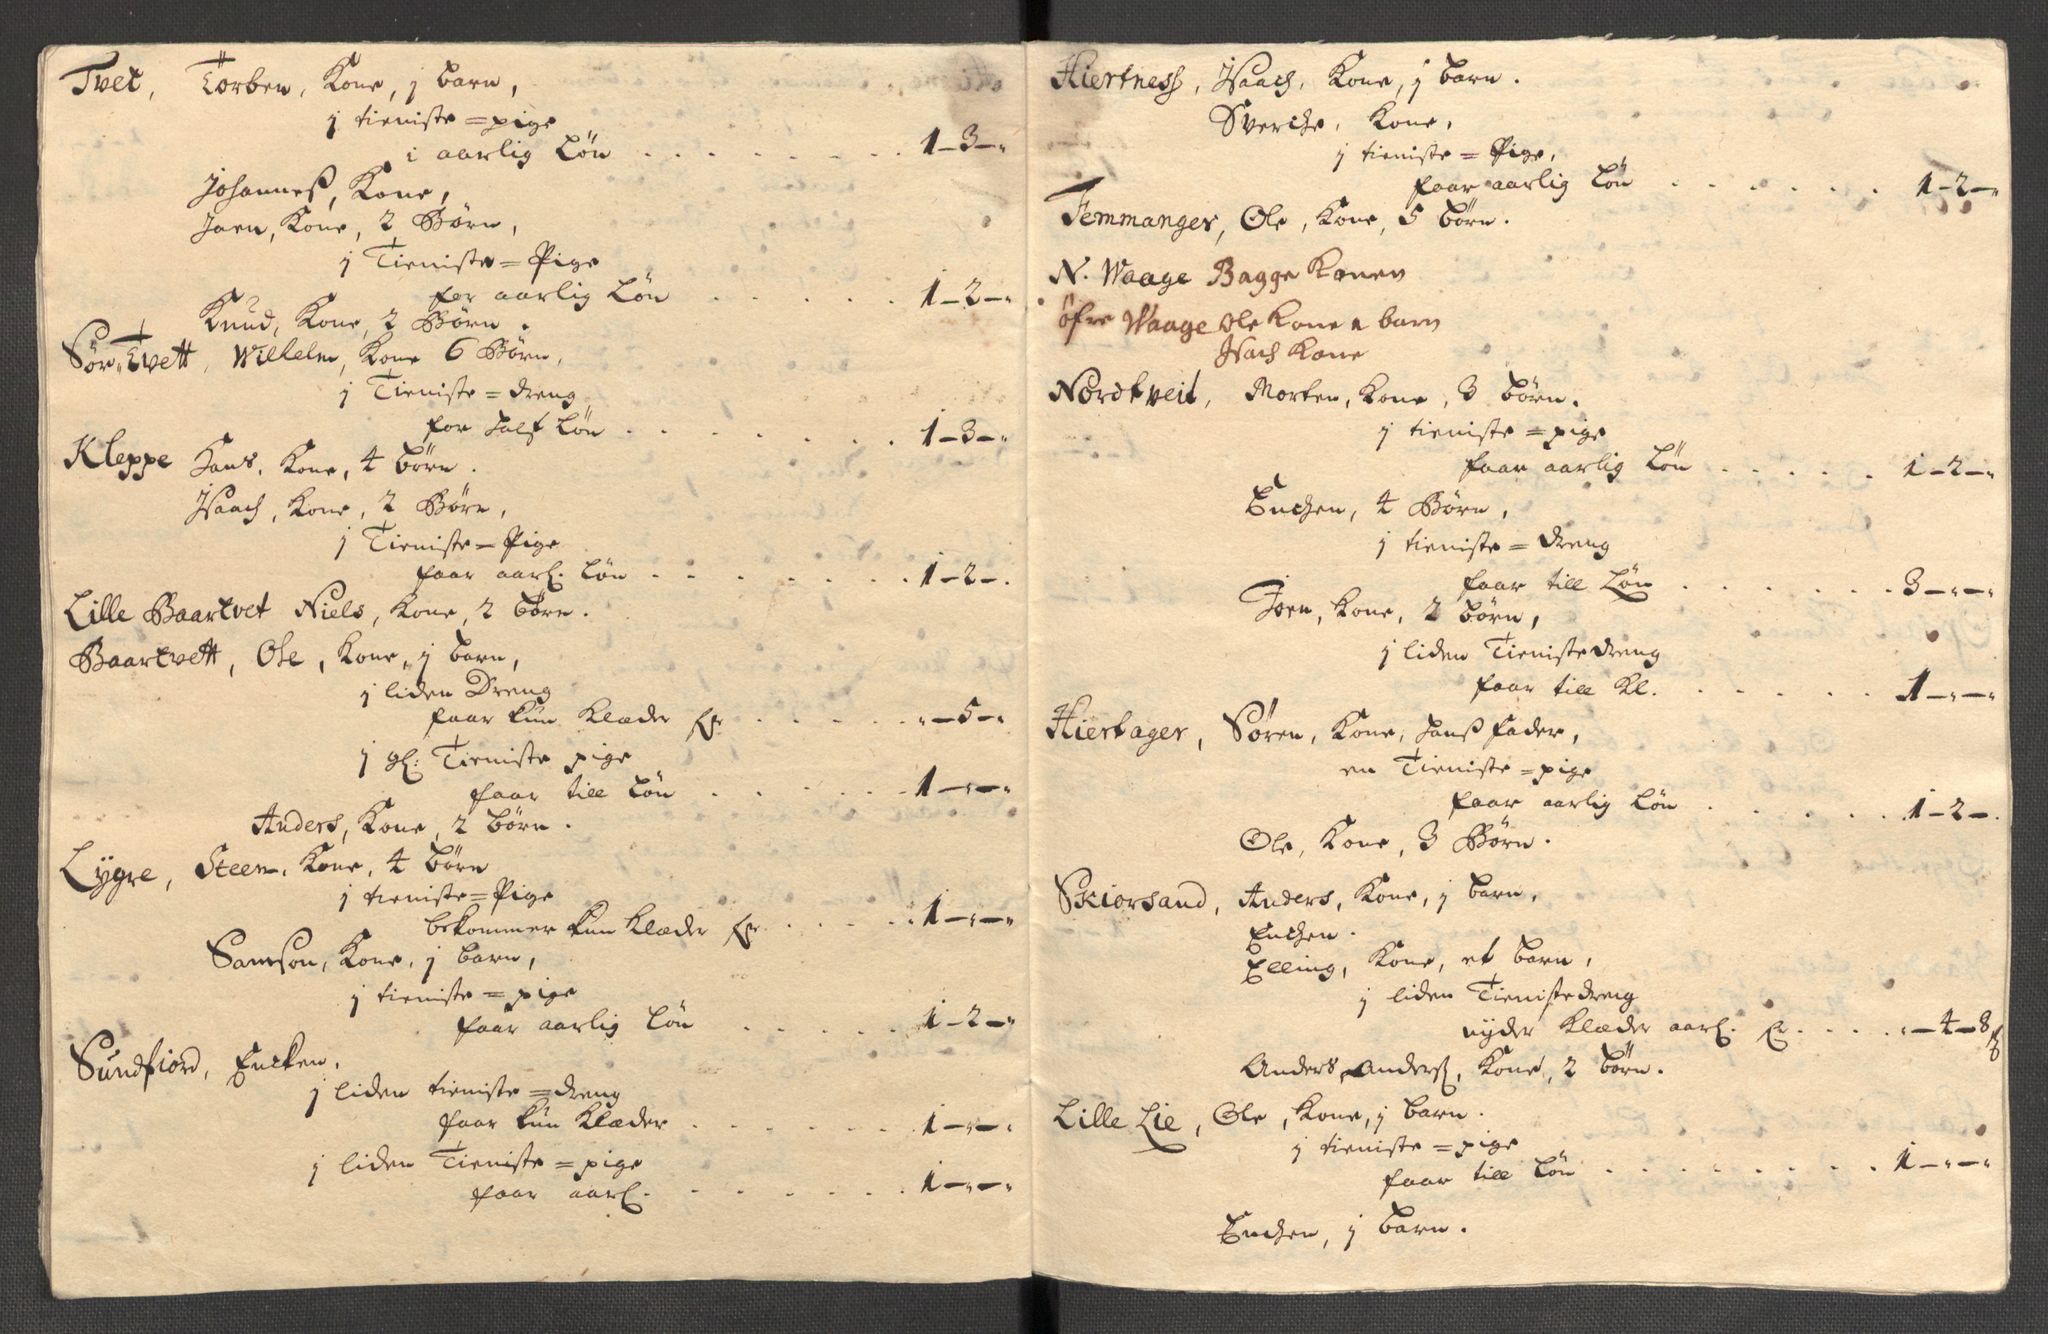 Tvet, Torben, Kone, j barn,
j tieniste=pige
i aarlig Løn . . . . . . . 1-3-"
Johanneß, Kone,
Joen, Kone, 2 Børn,
j Tieniste=Pige
for aarlig Løn . . . . . 1-2-"
Knud, Kone, 2 Børn.
Sør-Tvett, Wilhelm, Kone 6 Børn,
j Tieniste=dreng
for half Løn . . . . . . . 1-3-"
Kleppe Hans, Kone, 4 børn.
Jsaach, Kone, 2 Børn,
j Tieniste=Pige
faar aarl. Løn . . . . . . . 1-2-.
Lille Baartvet Niels, Kone, 2 børn.
Baartvett, Ole, Kone, j barn,
j liden Dreng
faar kun Klæder for . . . . . "-5-"
j gl: Tieniste pige
faar till Løn . . . . . 1-"-"
Anders, Kone, 2 børn.
Lygre, Steen, Kone, 4 børn
j tieniste=Pige
bekommer kun Klæder for . . . . . 1-"-"
Samson, Kone, j barn,
j tieniste=pige
faar aarlig Løn . . . . . 1-2-"
Sundfiord, Encken,
j liden tieniste=dreng
faar kun Klæder . . . . . . 1-"-"
j liden Tieniste=pige
faar aarl. . . . . . . 1-"-"
Hiertness, Jsaach, Kone, j barn.
Sverche, Kone,
j tieniste=Pige,
faar aarlig Løn . . . . . . 1-2-"
Femmanger, Ole, Kone, 5 børn.
N. Waage Bagge Konen
Øfre Waage Ole Kone a barn
Jsach Kone
Nordtveit, Morten, Kone, 3 børn.
j tieniste=pige
faar aarlig Løn . . . . . 1-2-"
Enchen, 4 Børn,
j tieniste=dreng
faar till Løn . . . . . . . 3-"-"
Joen, Kone, 2 børn,
j liden Tienistedreng
faar till Kl. . . . . . . 1-"-"
Hiertager, Søren, Kone, hanß fader,
en Tieniste=pige
faar aarlig Løn . . . . . 1-2-.
Ole, Kone, 3 Børn.
Skiorsand, Anders, Kone, j barn,
Enchen.
Elling, Kone, et barn,
j liden Tienistedreng
nyder Klæder aarl. for . . . . "-4-8 ß
Anders Anders, Kone, 2 børn.
Lille Lie, Ole, Kone, j barn.
j tieniste=pige
faar till Løn . . . . . . . . 1-"-"
Enchen, j barn.